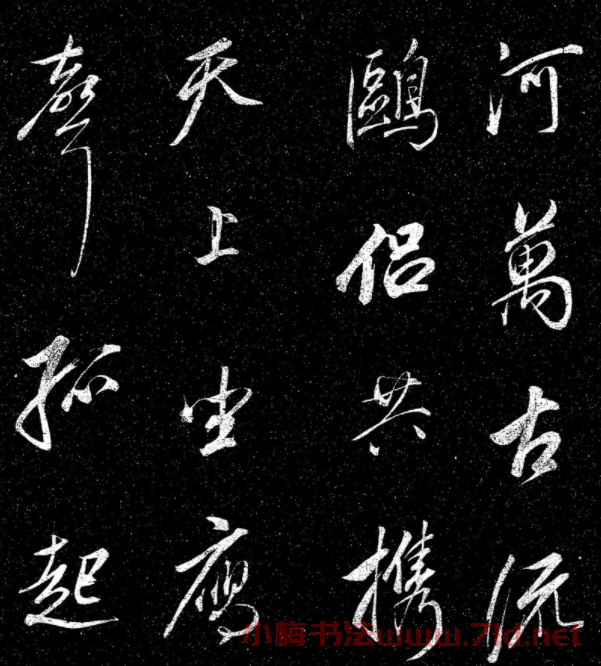 河萬古流
鷗侶共携
天上坐鴈
聲孤起
小梅书法www.7ld.net